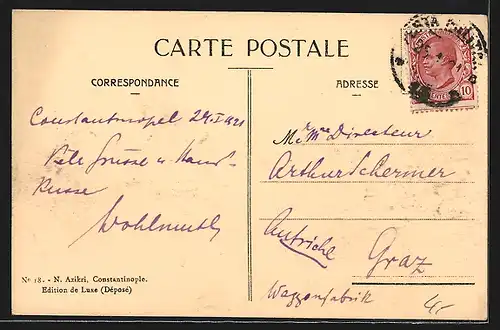 CARTE POSTALE
CORRESPONDANCE
ADRESSE
POSTA MILITARE
10
Constantinopel 24 I 1921
Viele Grüsse u. Hand-
küsse
Wohlmuth
M. Mme Directeur
Arthur Schermer
Autriche
Graz
Waggonfabrik
No 18. - N. Azikri, Constantinople.
Edition de Luxe (Déposé)
4,-